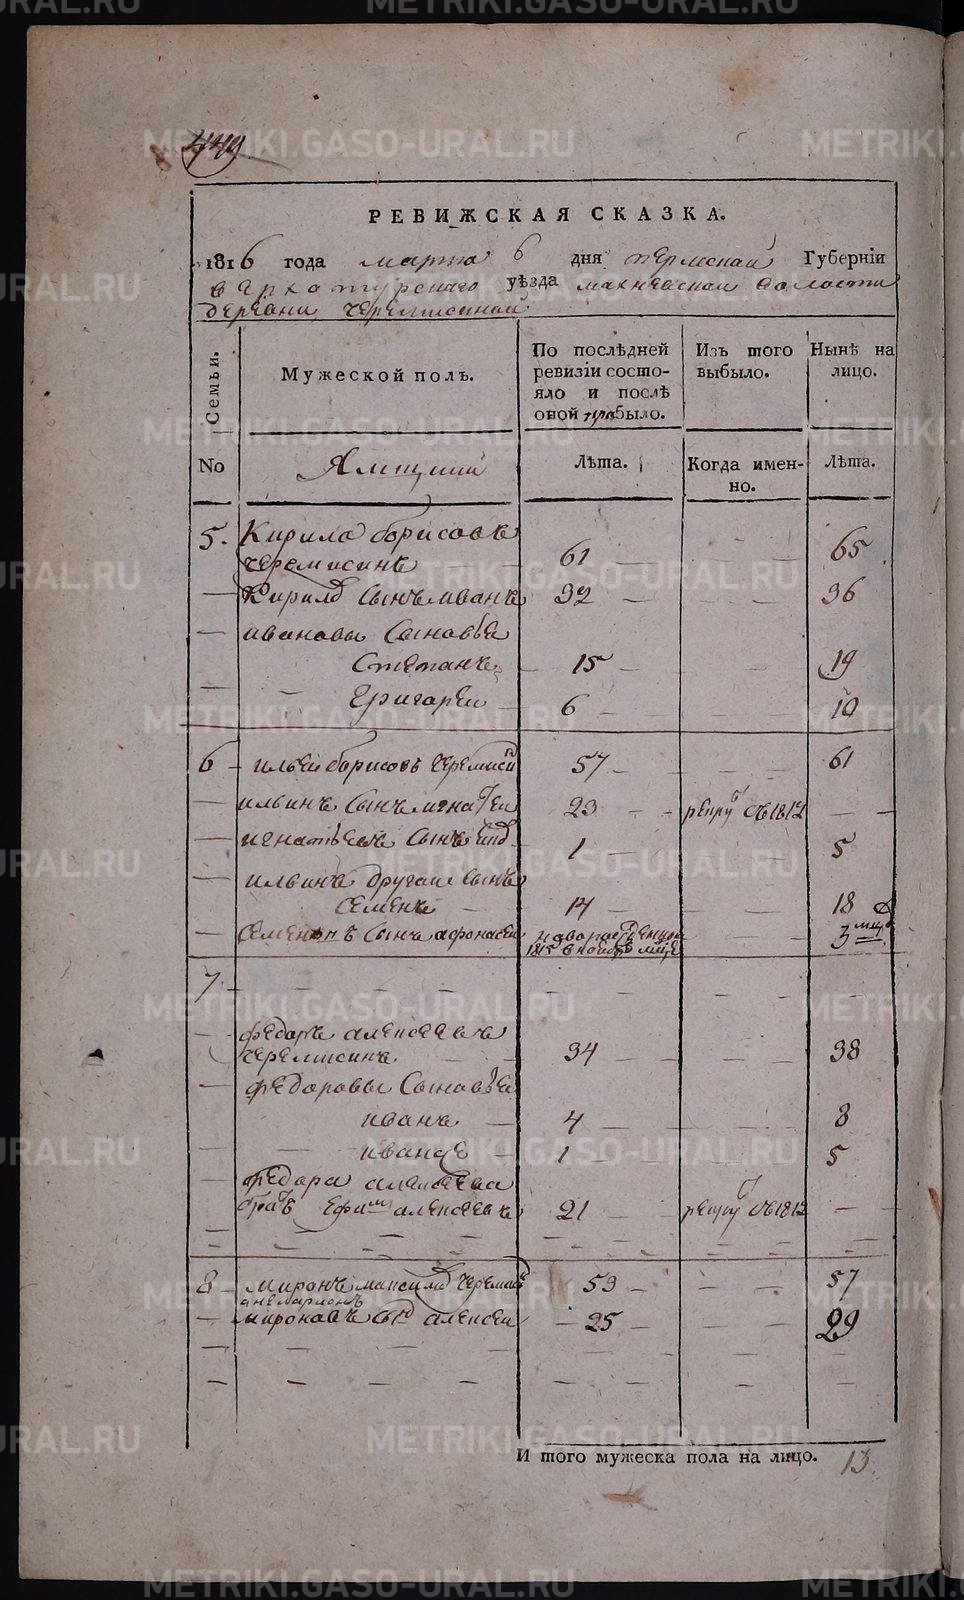 449
РЕВИЖСКАЯ СКАЗКА.
1816 года марта 6 дня пермскай Губерніи
верхотурскаго уѣзда махневскои валости
деревни черемисинаи
Семьи.
Мужеской полъ.
По послѣдней ревизіи состояло и послѣ оной прибыло.
Изъ того выбыло.
Нынѣ на лицо.
No Ямщики Лѣта. Когда именно. Лѣта.
5. Кирила борисовъ
черемисинъ 61 — — 65
— Кирилы Сынъ иванъ 32 — — 36
— ивановы Сыновья
Степанъ 15 — — 19
— — Григореи 6 — — 10
6 — илья борисовъ черемисинъ 57 — — 61
— ильинъ Сынъ игнатеи 23 — рекру съ 1812 — —
— игнатьевъ Сынъ 1 — — 5
— ильинъ другаи сынъ
Семенъ — 14 — — 18
— Семенонъ Сынъ афонасеи новорожденнои
1815 в ноябре мце — 3 мцд
7 — — — —
— федоръ алексеевъ
черемисинъ — — 34 — — 38
— федоровы Сыновьеи
иванъ — 4 — — 8
— — иванже — 1 — — 5
— федора алексеева
братъ ефим алексеевъ 21 — рекру съ 1812 — —
8 — миронъ максимо черемисин 53 — — 57
анеларионъ
— мироновъ сынъ алексеи — 25 — — — 29
И того мужеска пола на лицо. 13
METRIKI.GASO-URAL.RU